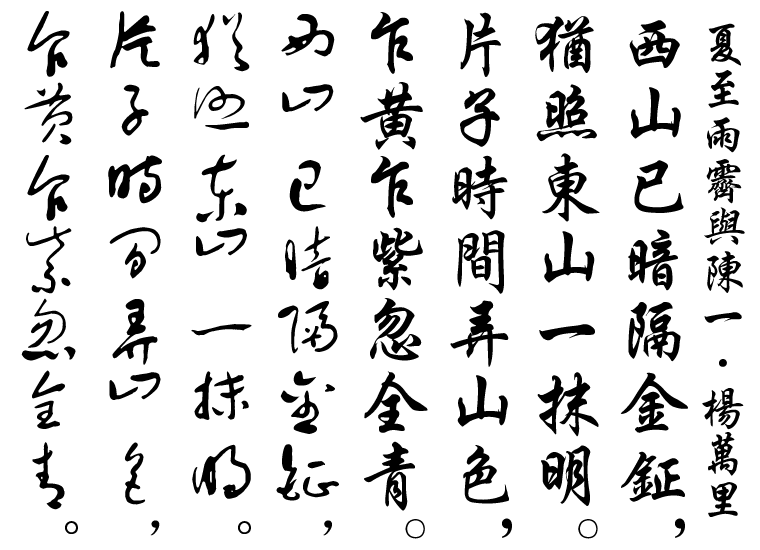 夏至雨霽與陳一・楊萬里
西山已暗隔金鉦，
猶照東山一抹明。
片子時間弄山色，
乍黃乍紫忽全青。
西山已暗隔金鉦，
猶照東山一抹明。
片子時間弄山色，
乍黃乍紫忽全青。